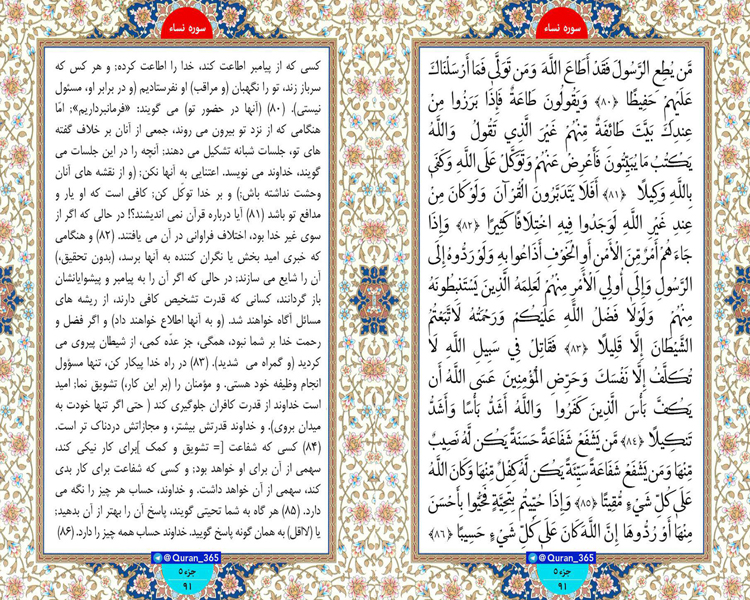 سوره نساء
مَّن يُطِعِ الرَّسُولَ فَقَدْ أَطَاعَ اللَّهَ وَمَن تَوَلَّى فَمَا أَرْسَلْنَاكَ
عَلَيْهِمْ حَفِيظًا ﴿٨٠﴾ وَيَقُولُونَ طَاعَةٌ فَإِذَا بَرَزُوا مِنْ
عِندِكَ بَيَّتَ طَائِفَةٌ مِّنْهُمْ غَيْرَ الَّذِي تَقُولُ وَاللَّهُ
يَكْتُبُ مَا يُبَيِّتُونَ فَأَعْرِضْ عَنْهُمْ وَتَوَكَّلْ عَلَى اللَّهِ وَكَفَى
بِاللَّهِ وَكِيلًا ﴿٨١﴾ أَفَلَا يَتَدَبَّرُونَ الْقُرْآنَ وَلَوْ كَانَ مِنْ
عِندِ غَيْرِ اللَّهِ لَوَجَدُوا فِيهِ اخْتِلَافًا كَثِيرًا ﴿٨٢﴾ وَإِذَا
جَاءَهُمْ أَمْرٌ مِّنَ الْأَمْنِ أَوِ الْخَوْفِ أَذَاعُوا بِهِ وَلَوْ رَدُّوهُ إِلَى
الرَّسُولِ وَإِلَى أُولِي الْأَمْرِ مِنْهُمْ لَعَلِمَهُ الَّذِينَ يَسْتَنبِطُونَهُ
مِنْهُمْ وَلَوْلَا فَضْلُ اللَّهِ عَلَيْكُمْ وَرَحْمَتُهُ لَاتَّبَعْتُمُ
الشَّيْطَانَ إِلَّا قَلِيلًا ﴿٨٣﴾ فَقَاتِلْ فِي سَبِيلِ اللَّهِ لَا
تُكَلَّفُ إِلَّا نَفْسَكَ وَحَرِّضِ الْمُؤْمِنِينَ عَسَى اللَّهُ أَن
يَكُفَّ بَأْسَ الَّذِينَ كَفَرُوا وَاللَّهُ أَشَدُّ بَأْسًا وَأَشَدُّ
تَنكِيلًا ﴿٨٤﴾ مَّن يَشْفَعْ شَفَاعَةً حَسَنَةً يَكُن لَّهُ نَصِيبٌ
مِّنْهَا وَمَن يَشْفَعْ شَفَاعَةً سَيِّئَةً يَكُن لَّهُ كِفْلٌ مِّنْهَا وَكَانَ اللَّهُ
عَلَى كُلِّ شَيْءٍ مُّقِيتًا ﴿٨٥﴾ وَإِذَا حُيِّيتُم بِتَحِيَّةٍ فَحَيُّوا بِأَحْسَنَ
مِنْهَا أَوْ رُدُّوهَا إِنَّ اللَّهَ كَانَ عَلَى كُلِّ شَيْءٍ حَسِيبًا ﴿٨٦﴾
@Quran_365
جزء ۵
۹۱
سوره نساء
کسی که از پیامبر اطاعت کند، خدا را اطاعت کرده; و هر کس که
سرباز زند، تو را نگهبان (و مراقب) او نفرستادیم (و در برابر او، مسئول
نیستی). (۸۰) (آنها در حضور تو) می گویند: «فرمانبرداریم»; امّا
هنگامی که از نزد تو بیرون می روند، جمعی از آنان بر خلاف گفته
های تو، جلسات شبانه تشکیل می دهند; آنچه را در این جلسات می
گویند، خداوند می نویسد. اعتنایی به آنها نکن; (و از نقشه های آنان
وحشت نداشته باش;) و بر خدا توکّل کن; کافی است که او یار و
مدافع تو باشد (۸۱) آیا درباره قرآن نمی اندیشند؟! در حالی که اگر از
سوی غیر خدا بود، اختلاف فراوانی در آن می یافتند. (۸۲) و هنگامی
که خبری امید بخش یا نگران کننده به آنها برسد، (بدون تحقیق،)
آن را شایع می سازند; در حالی که اگر آن را به پیامبر و پیشوایانشان
باز گردانند، کسانی که قدرت تشخیص کافی دارند، از ریشه های
مسائل آگاه خواهند شد. (و به آنها اطلاع خواهند داد) و اگر فضل و
رحمت خدا بر شما نبود، همگی، جز عدّه کمی، از شیطان پیروی می
کردید (و گمراه می شدید). (۸۳) در راه خدا پیکار کن، تنها مسؤول
انجام وظیفه خود هستی. و مؤمنان را (بر این کار،) تشویق نما; امید
است خداوند از قدرت کافران جلوگیری کند ( حتی اگر تنها خودت به
میدان بروی). و خداوند قدرتش بیشتر، و مجازاتش دردناک تر است.
(۸۴) کسی که شفاعت [= تشویق و کمک ]برای کار نیکی کند،
سهمی از آن برای او خواهد بود; و کسی که شفاعت برای کار بدی
کند، سهمی از آن خواهد داشت. و خداوند، حساب هر چیز را نگه می
دارد. (۸۵) هر گاه به شما تحیتی گویند، پاسخ آن را بهتر از آن بدهید;
یا (لااقل) به همان گونه پاسخ گویید. خداوند حساب همه چیز را دارد. (۸۶)
@Quran_365
جزء ۵
۹۱